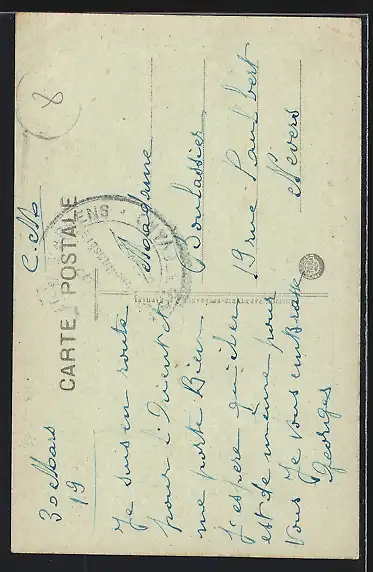 CARTE POSTALE
C. M.
8
30 Mars
19.
Je suis en route
pour l'Orient et
me porte Bien
J'espère qu'il en
est de même pour
vous Je vous embrasse
Georges
Madame
19 rue Paul bert
Nevers